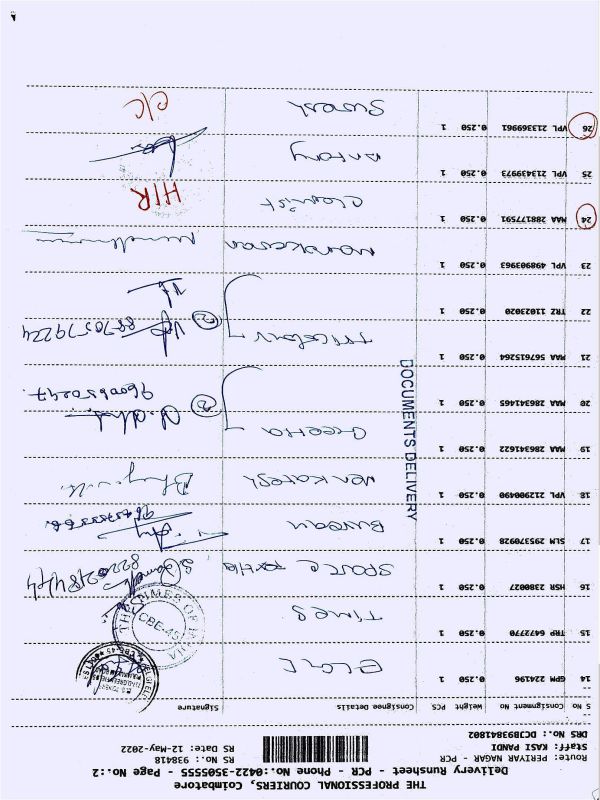 THE PROFESSIONAL COURIERS, Coimbatore
Delivery Runsheet - PCR - Phone No.:0422-3505555 - Page No.:2
Route: PERIYAR NAGAR - PCR RS No.: 938418
Staff: KASI PANDI RS Date: 12-May-2022
DRS No.: DCJB93841802
S No Consignment No Weight PCS Consignee Details Signature
14 GPM 224196 0.250 1
15 TRP 6472770 0.250 1 TIMES
THE TIMES OF INDIA
CBE-45
16 HSR 2380027 0.250 1
17 SLM 295370928 0.250 1 BUREAU
18 VPL 212900490 0.250 1 Venkatesh
19 MAA 286341622 0.250 1 Geetha
20 MAA 286341465 0.250 1 2
21 MAA 567615264 0.250 1 2 8870579224
22 TRZ 11023020 0.250 1
23 VPL 498903963 0.250 1
24 MAA 288177591 0.250 1 HIR
25 VPL 213439973 0.250 1 Antony
26 VPL 213369961 0.250 1 Suresh C/C
DOCUMENTS DELIVERY